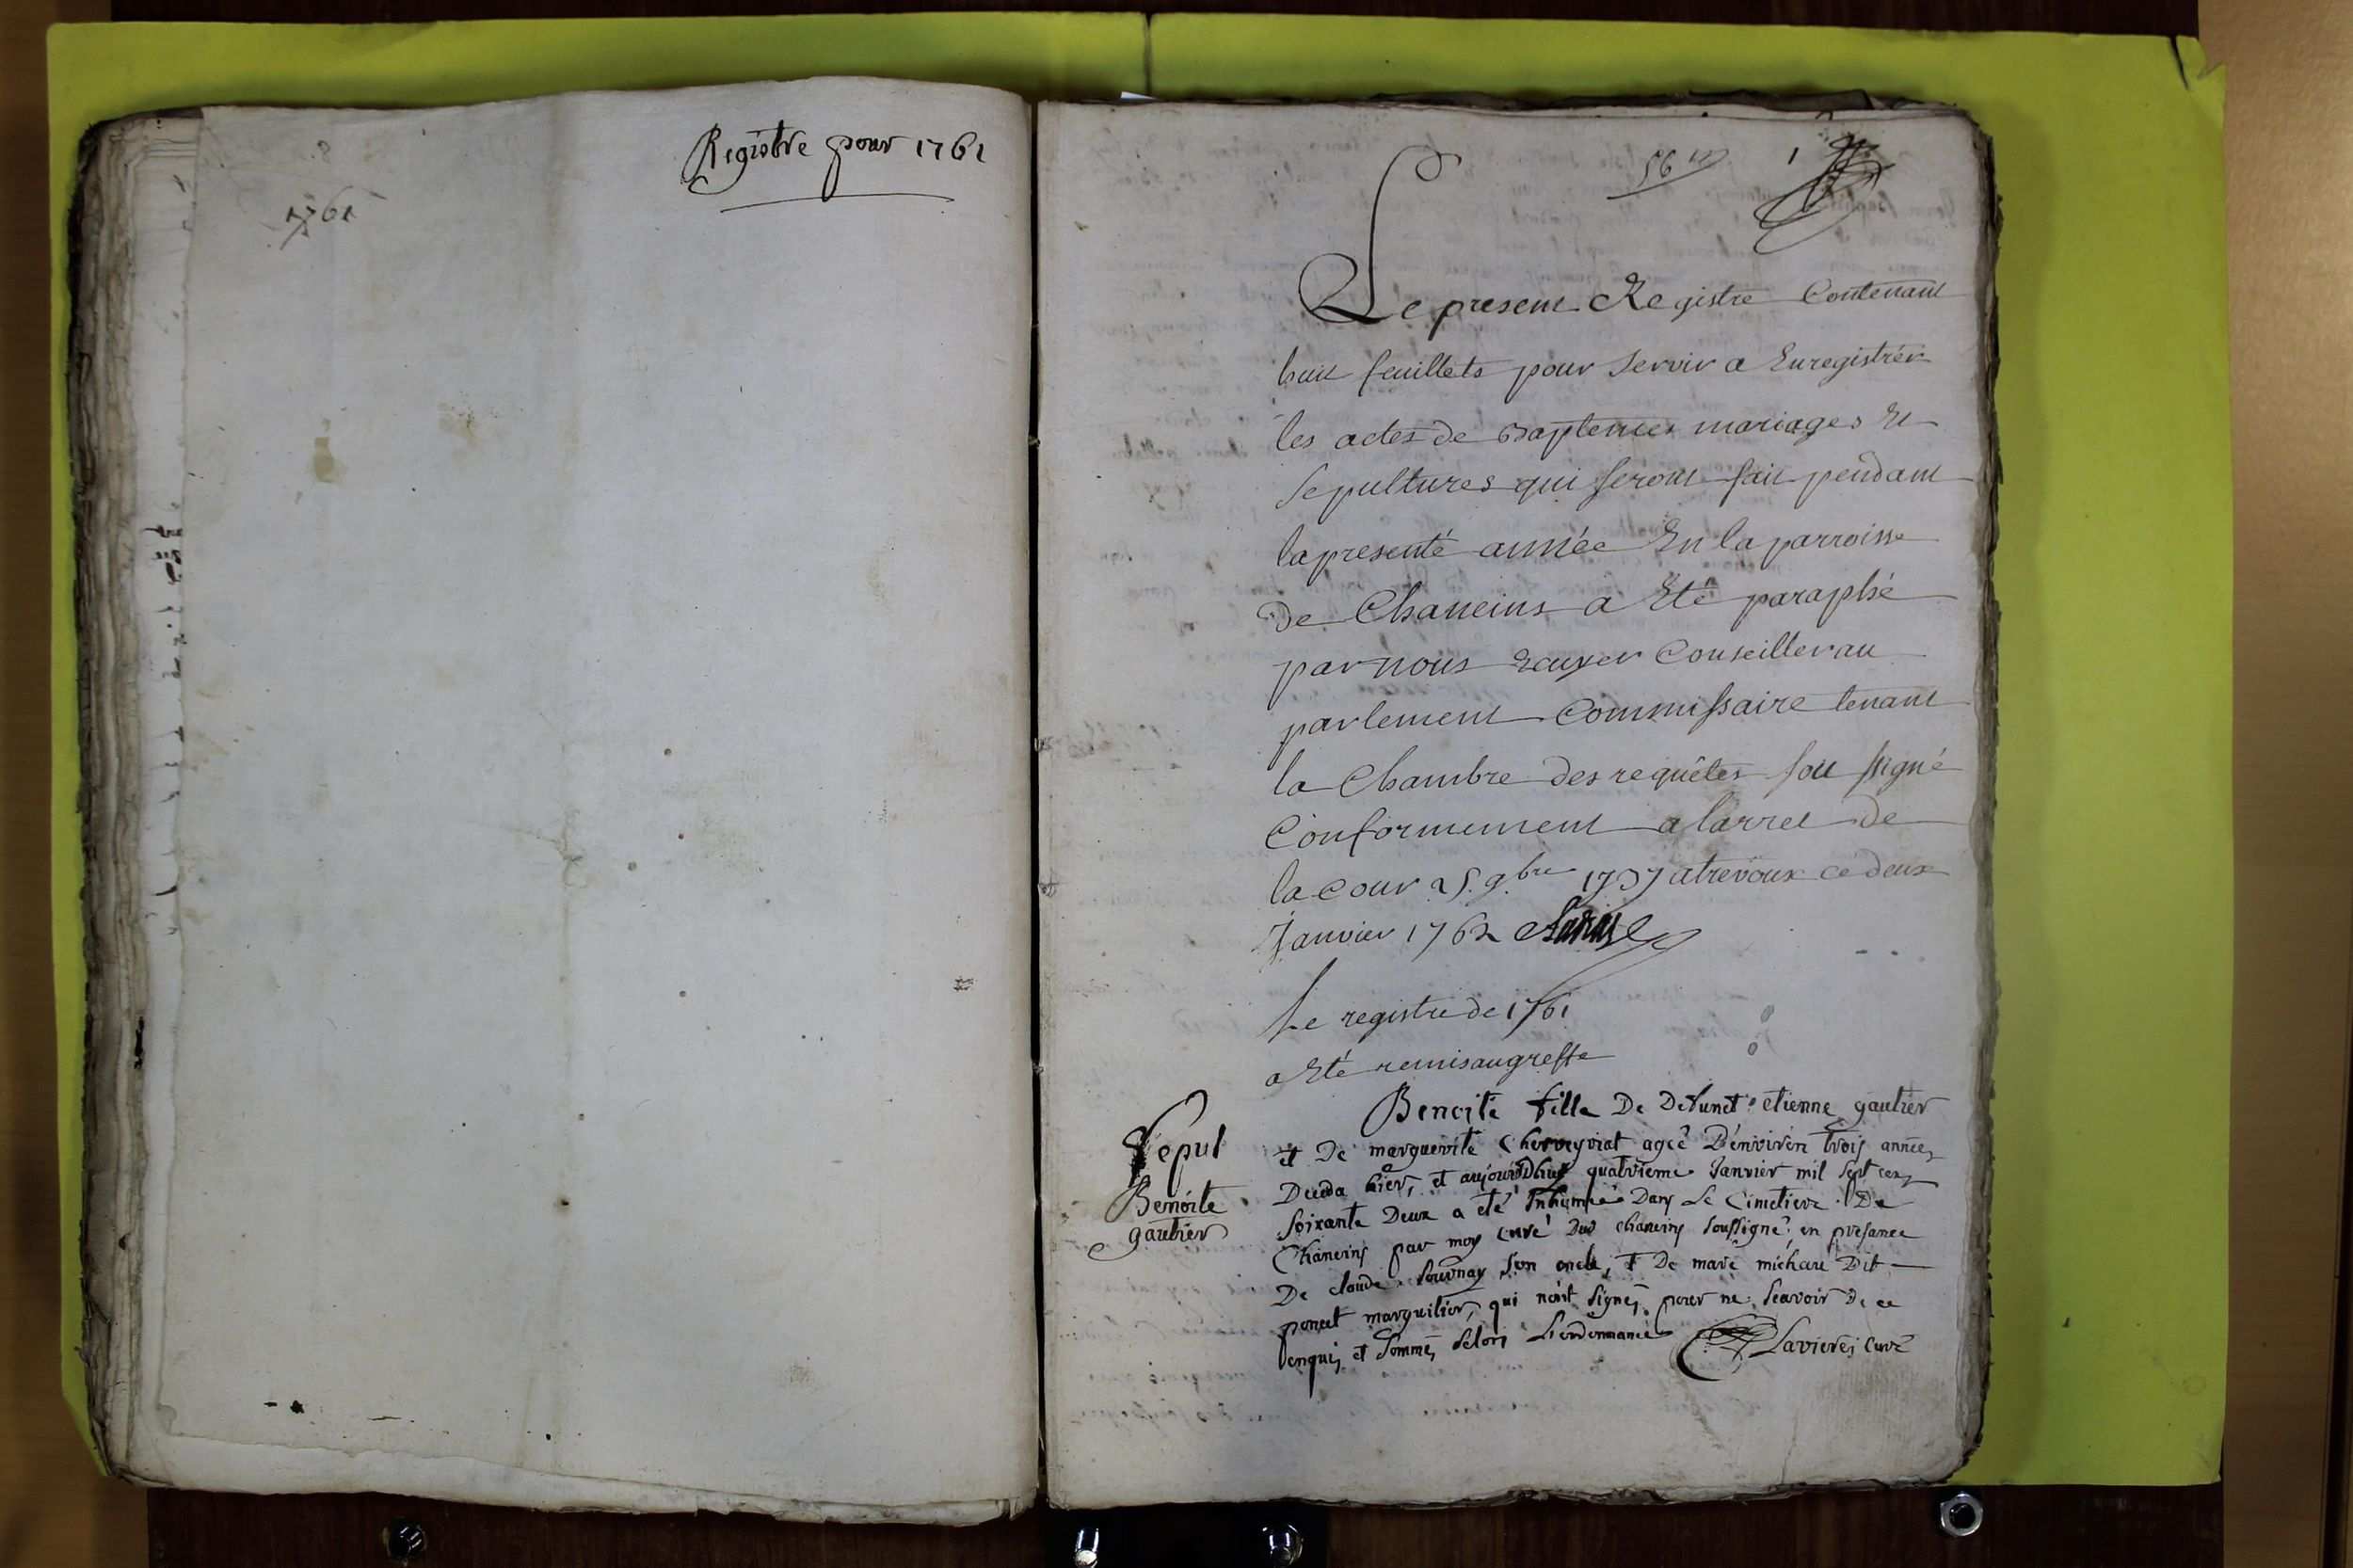 Registre pour 1761
1761
56
1
Le present Registre Contenant
huit feuillets pour Servir a Enregistrer
les actes de Baptemes mariages Et
Sepultures qui seront fait pendant
la presenté année En la parroisse
de Chaneins a Eté paraphé
par nous Ecuyer Conseiller au
parlement Commissaire tenant
la Chambre des requêtes sou signé
Conformement a larret de
la Cour 25 9.bre 1737 a trevoux ce deux
Janvier 1762
Le registre de 1761
a Eté remis au greffe
Sepul
Benoite
gautier
Benoite fille De Defunct etienne gautier
et De marguerite agée D'enviren trois années
Deceda hier, et aujourdhuy quatrieme Janvier mil sept cens
soixante Deux a été Inhumée Dans Le Cimetiere De
Chaneins par moy curé Dud chaneins soussigné, en presance
De claude son oncle, et De marc michau Dit
poncet marguilier, qui n'ont signés pour ne Scavoir De ce
enquis et Sommés Selon L'ordonnance
curé